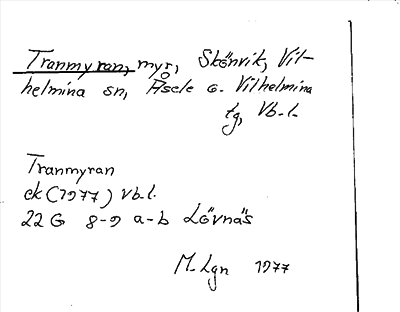 Tranmyran, myr, Skönvik, Vil-
helmina sn, Åsele o. Vilhelmina
tg, Vb. l.
Tranmyran
ek (1977) Vb. l.
22 G 8-9 a-b Lövnäs
M. Lgn 1977